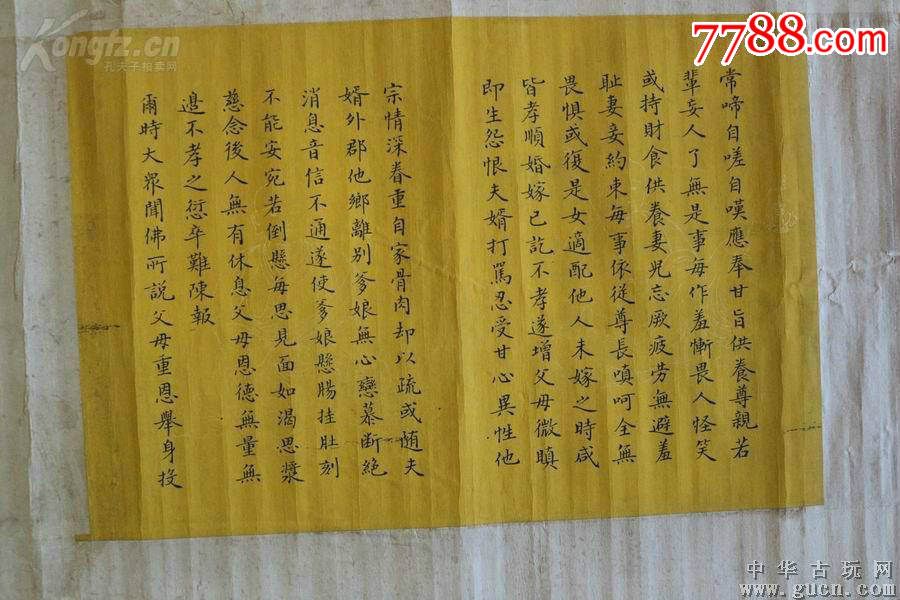 常啼自嗟自嘆應奉甘旨供養尊親若
輩妄人了無是事每作羞慚畏人怪笑
或持財食供養妻兒忘厥疲勞無避羞
耻妻妾約束每事依從尊長嗔呵全無
畏惧或復是女適配他人未嫁之時咸
皆孝順婚嫁已訖不孝遂增父母微瞋
即生怨恨夫婿打罵忍受甘心異性他
宗情深眷重自家骨肉却以疏或随夫
婿外郡他鄉離別爹娘無心戀慕断絶
消息音信不通遂使爹娘懸腸挂肚刻
不能安宛若倒懸每思見面如渴思漿
慈念後人無有休息父母恩德無量無
邉不孝之愆卒難陳報
爾時大眾聞佛所說父母重恩舉身投
Kongfz.cn
孔夫子拍卖网
7788.com
中华古玩网
www.gucn.com